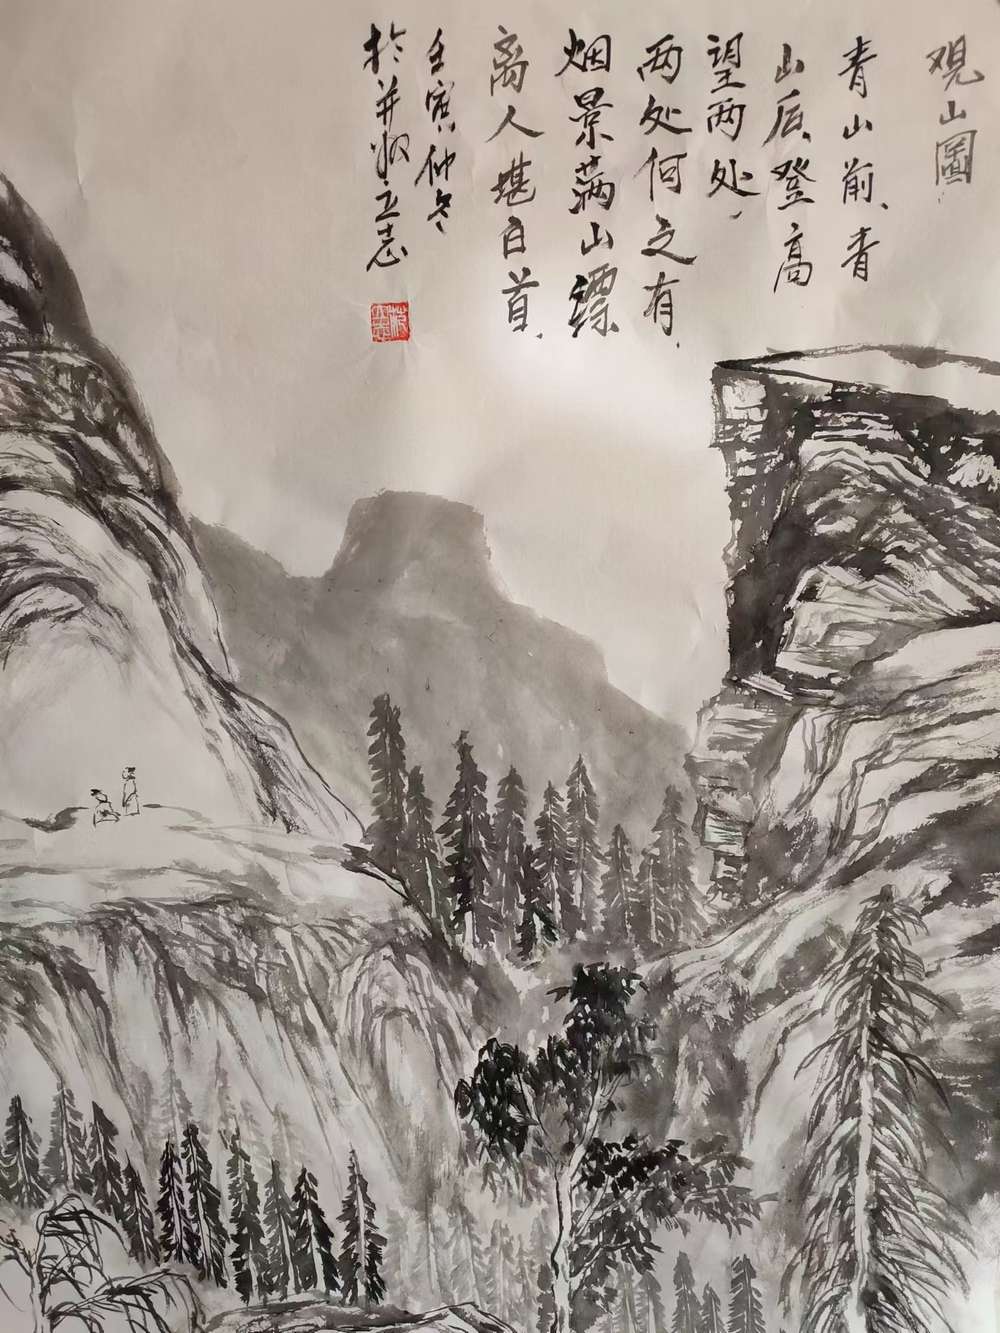 观山圖
青山前、青
山后、登高
望两处、
两处何之有、
烟景满山缥
离人堪白首、
壬寅仲冬
於并州立志